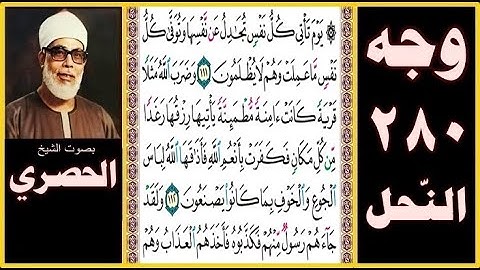 وجه
٢٨٠
النّحل
۞ يَوْمَ تَأْتِي كُلُّ نَفْسٍ تُجَٰدِلُ عَن نَّفْسِهَا وَتُوَفَّىٰ كُلُّ
نَفْسٍ مَّا عَمِلَتْ وَهُمْ لَا يُظْلَمُونَ ١١١ وَضَرَبَ ٱللَّهُ مَثَلًا
قَرْيَةً كَانَتْ ءَامِنَةً مُّطْمَئِنَّةً يَأْتِيهَا رِزْقُهَا رَغَدًا
مِّن كُلِّ مَكَانٍ فَكَفَرَتْ بِأَنْعُمِ ٱللَّهِ فَأَذَٰقَهَا ٱللَّهُ لِبَاسَ
ٱلْجُوعِ وَٱلْخَوْفِ بِمَا كَانُوا۟ يَصْنَعُونَ ١١٢ وَلَقَدْ
جَآءَهُمْ رَسُولٌ مِّنْهُمْ فَكَذَّبُوهُ فَأَخَذَهُمُ ٱلْعَذَابُ وَهُمْ
بصوت الشيخ
الحصري